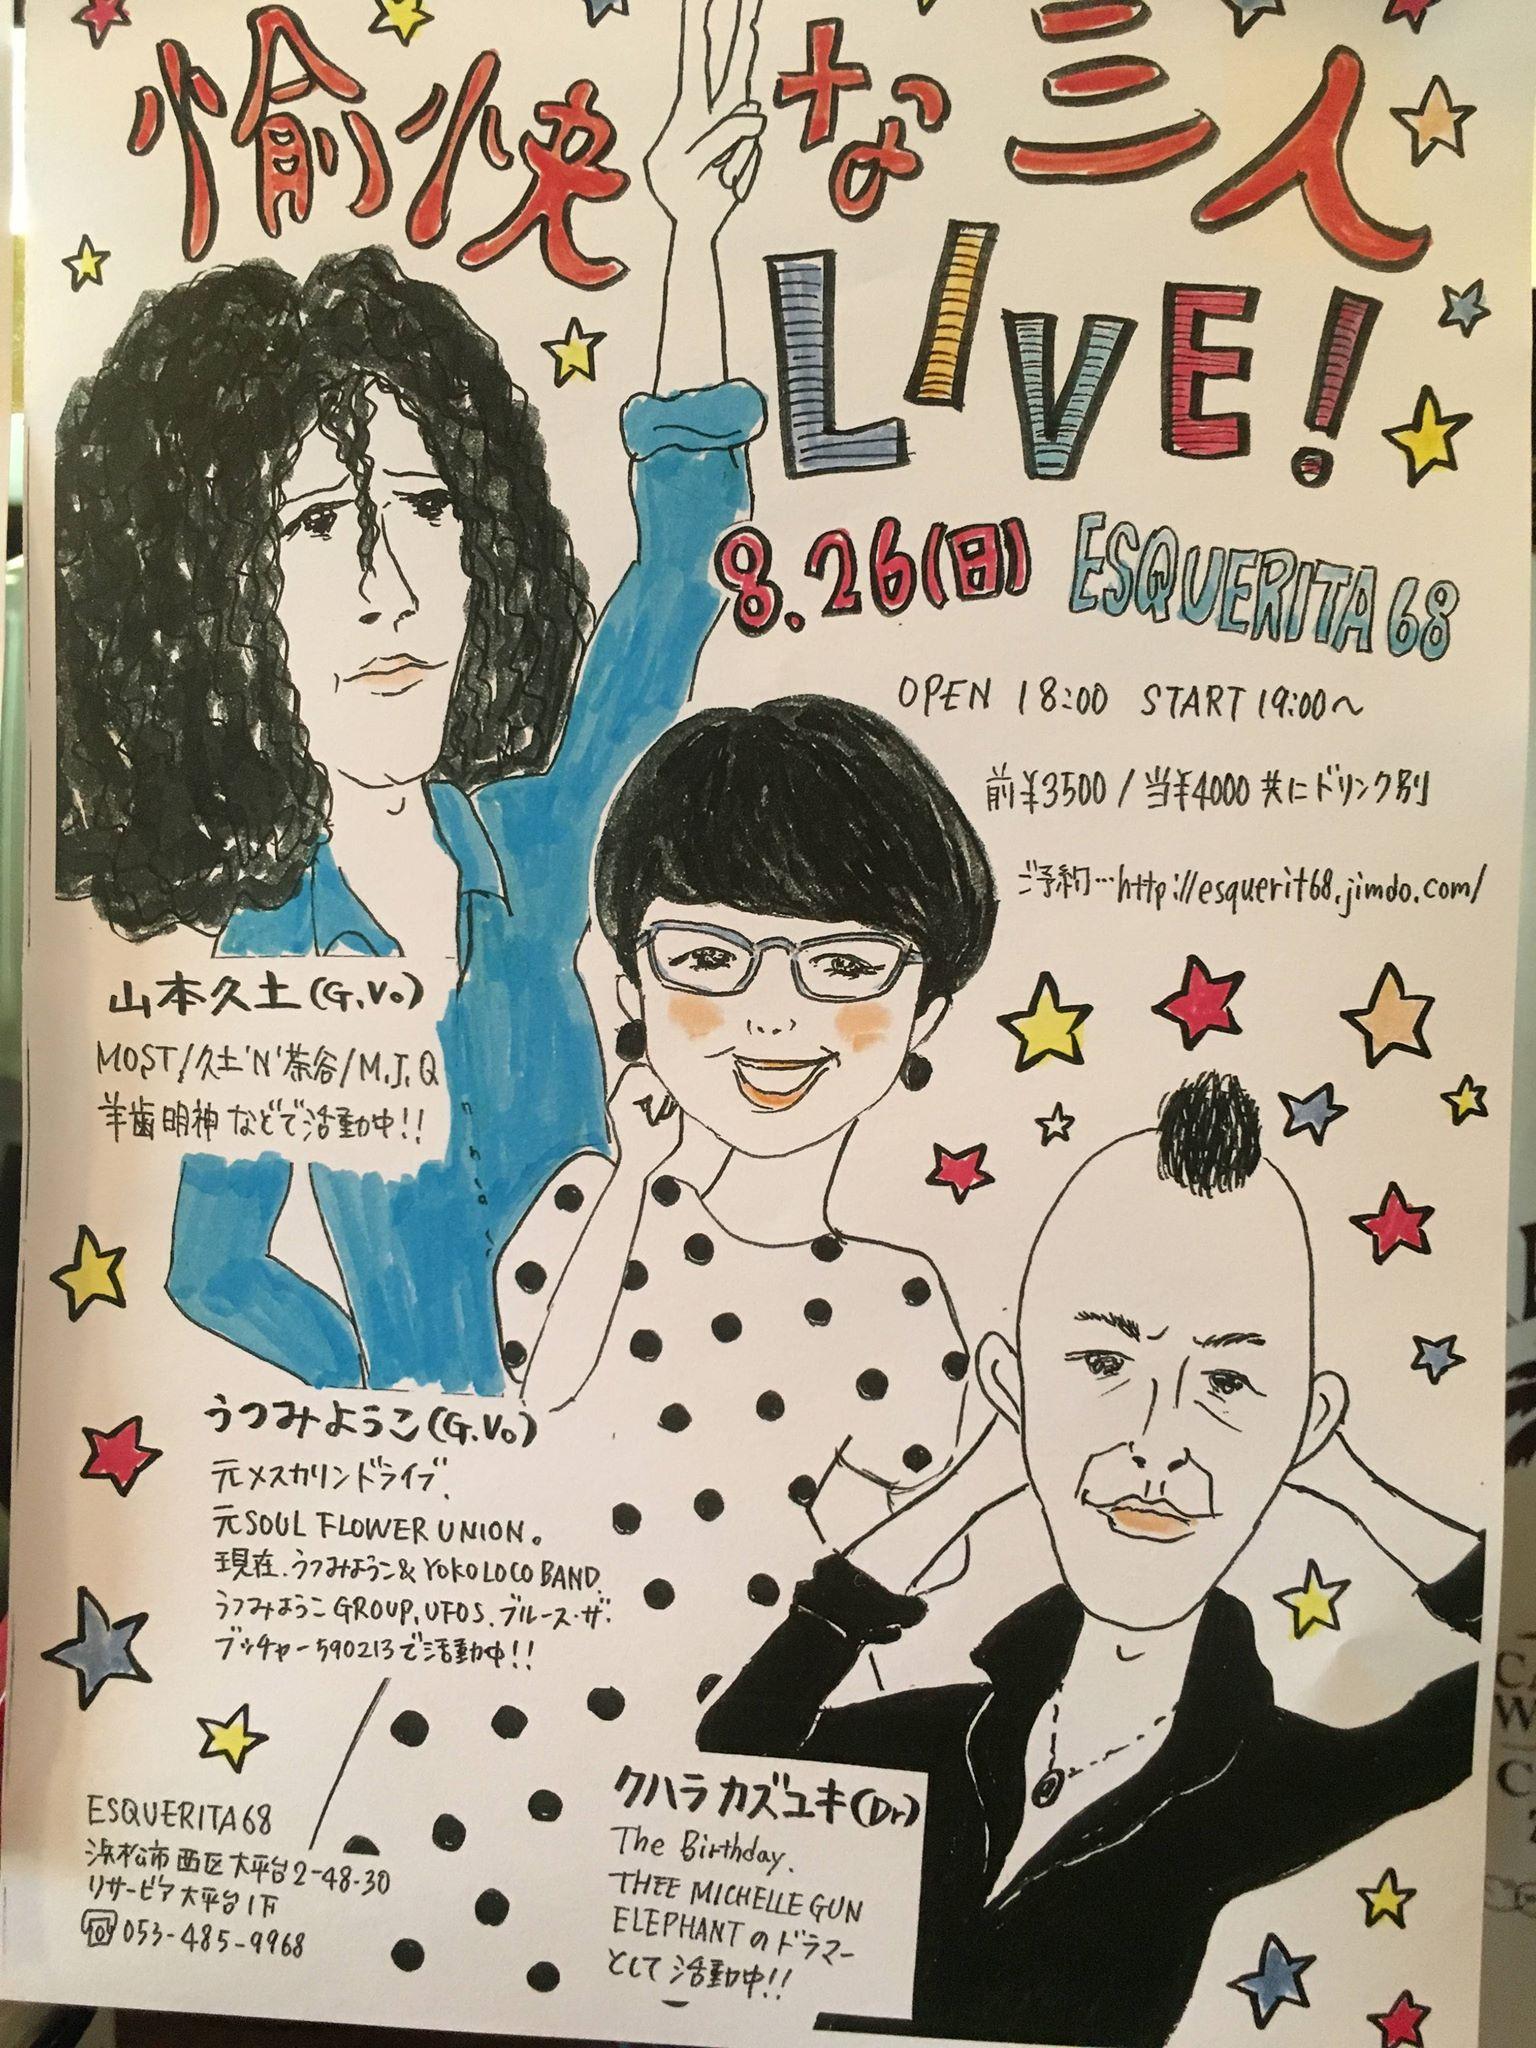 愉快な三人
LIVE!
8.26(日) ESQUERITA 68
OPEN 18:00 START 19:00〜
前¥3500 / 当¥4000 共にドリンク別
ご予約…http://esquerit68.jimdo.com/
山本久土(G.Vo)
MOST/久土'N'茶谷/M.J.Q
羊歯明神などで活動中!!
うつみようこ(G.Vo)
元メスカリンドライブ.
元SOUL FLOWER UNION。
現在.うつみようこ&YOKOLOCO BAND.
うつみようこGROUP.UFOS.ブルース・ザ・
ブッチャー590213で活動中!!
クハラカズユキ(Dr)
The Birthday.
THEE MICHELLE GUN
ELEPHANTのドラマー
として活動中!!
ESQUERITA68
浜松市西区大平台2-48-30
リサービア大平台1F
053-485-9968